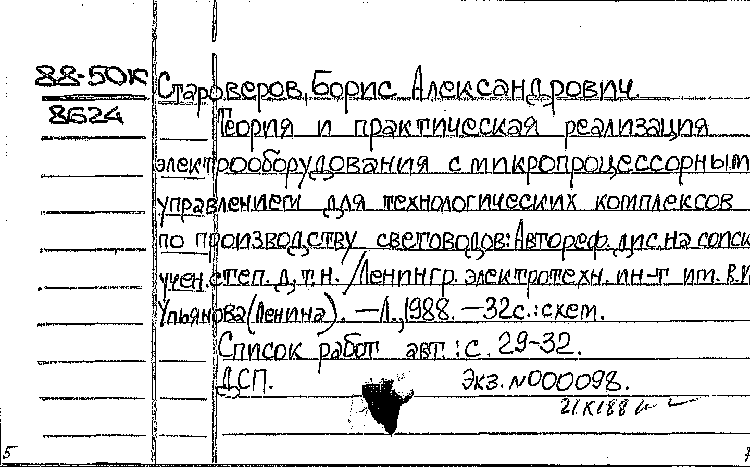 88-50К Староверов, Борис Александрович.
8624 Теория и практическая реализация
электрооборудования с микропроцессорным
управлением для технологических комплексов
по производству световодов: Автореф. дис. на соиск
учен. степ. д. т. н. / Ленингр. электротехн. ин-т им. В.И
Ульянова (Ленина). — Л., 1988. — 32 с.: схем.
Список работ авт.: с. 29-32.
ДСП. Экз. N000098.
5